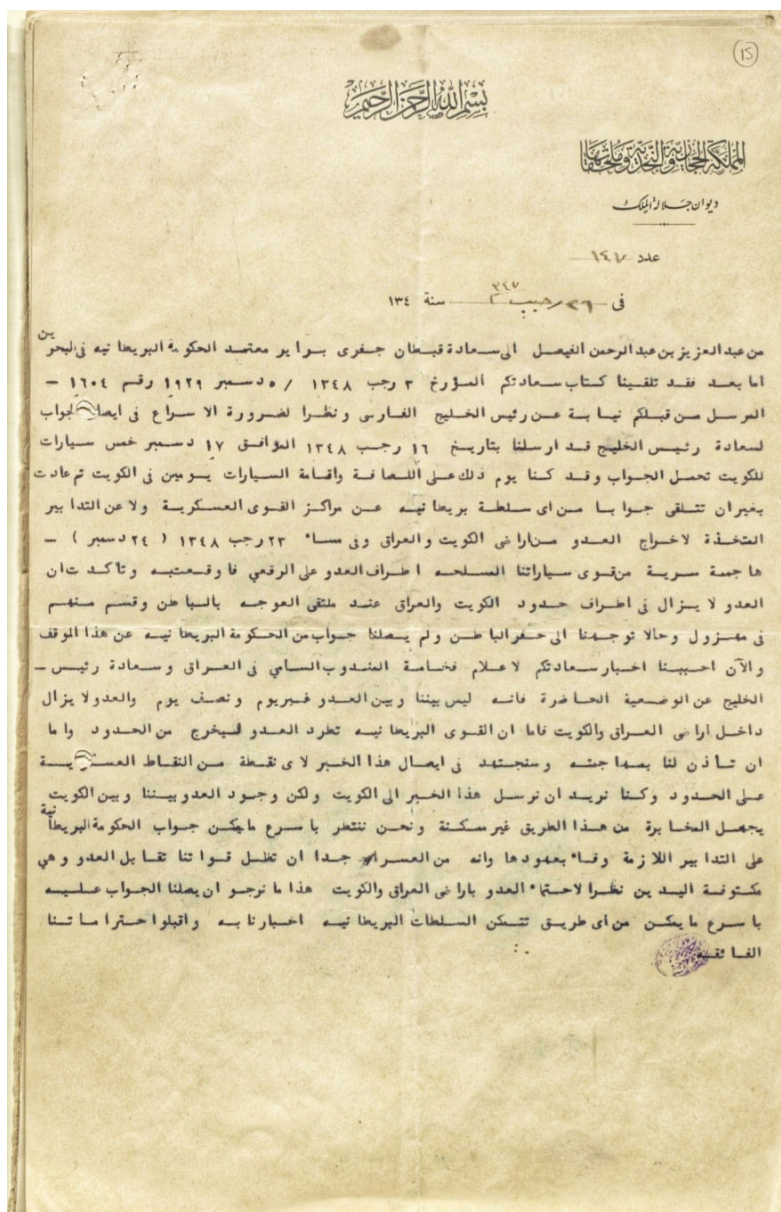 ١٥
بسم الله الرحمن الرحيم
المملكة الحجازية والنجدية وملحقاتها
ديوان جلالة الملك
عدد ١٤٧
فى ٢٦ رجب سنة ١٣٤
من عبد العزيز بن عبد الرحمن الفيصل الى سعادة قبطان جفرى برايو معتمد الحكومة البريطانيه فى البحرين
اما بعد فقد تلقينا كتاب سعادتكم المؤرخ ٣ رجب ١٣٤٨ / ٥ دسمبر ١٩٢٩ رقم ١٦٠٤ —
المرسل من قبلكم نيابة عن رئيس الخليج الفارسى ونظرا لضرورة الاسراع فى ايصال الجواب
لسعادة رئيس الخليج قد ارسلنا بتاريخ ١٦ رجب ١٣٤٨ الموافق ١٧ دسمبر خمس سيارات
للكويت تحمل الجواب وقد كنا يوم ذلك على اللصافة واقامة السيارات يومين فى الكويت ثم عادت
بغيران تتلقى جوابا من اى سلطة بريطانيه عن مراكز القوى العسكرية ولا عن التدابير
المتخذة لاخراج العدو من اراضى الكويت والعراق وفى مساء ٢٣ رجب ١٣٤٨ ( ٢٤ دسمبر ) —
هاجمة سرية من قوى سياراتنا المسلحه اطراف العدو على الرقعي فاوقعت به وتأكدت ان
العدو لا يزال فى اطراف حدود الكويت والعراق عند ملتقى العوجه بالباطن وقسم منهم
فى مهزول وحالا توجهنا الى حفر الباطن ولم يصلنا جواب من الحكومة البريطانيه عن هذا الموقف
والآن احببنا اخبار سعادتكم لاعلام فخامة المندوب السامي فى العراق وسعادة رئيس —
الخليج عن الوضعية الحاضرة فانه ليس بيننا وبين العدو غير يوم ونصف يوم والعدو لا يزال
داخل اراضى العراق والكويت فاما ان القوى البريطانيه تطرد العدو فيخرج من الحدود واما
ان تأذن لنا بمهاجمته وسنجتهد فى ايصال هذا الخبر لاى نقطة من النقاط العسكرية
على الحدود وكنا نريد ان نرسل هذا الخبر الى الكويت ولكن وجود العدو بيننا وبين الكويت
يجعل المخابرة من هذا الطريق غير ممكنة ونحن ننتظر باسرع ما يمكن جواب الحكومة البريطانية
على التدابير اللازمة وفاء بعهودها وانه من العسر جدا ان تظل قواتنا تقابل العدو وهي
مكتوفة اليدين نظرا لاحتماء العدو باراضى العراق والكويت هذا ما نرجو ان يصلنا الجواب عليه
باسرع ما يمكن من اى طريق تتمكن السلطات البريطانيه اخبارنا به واقبلوا احتراماتنا
الفائقه